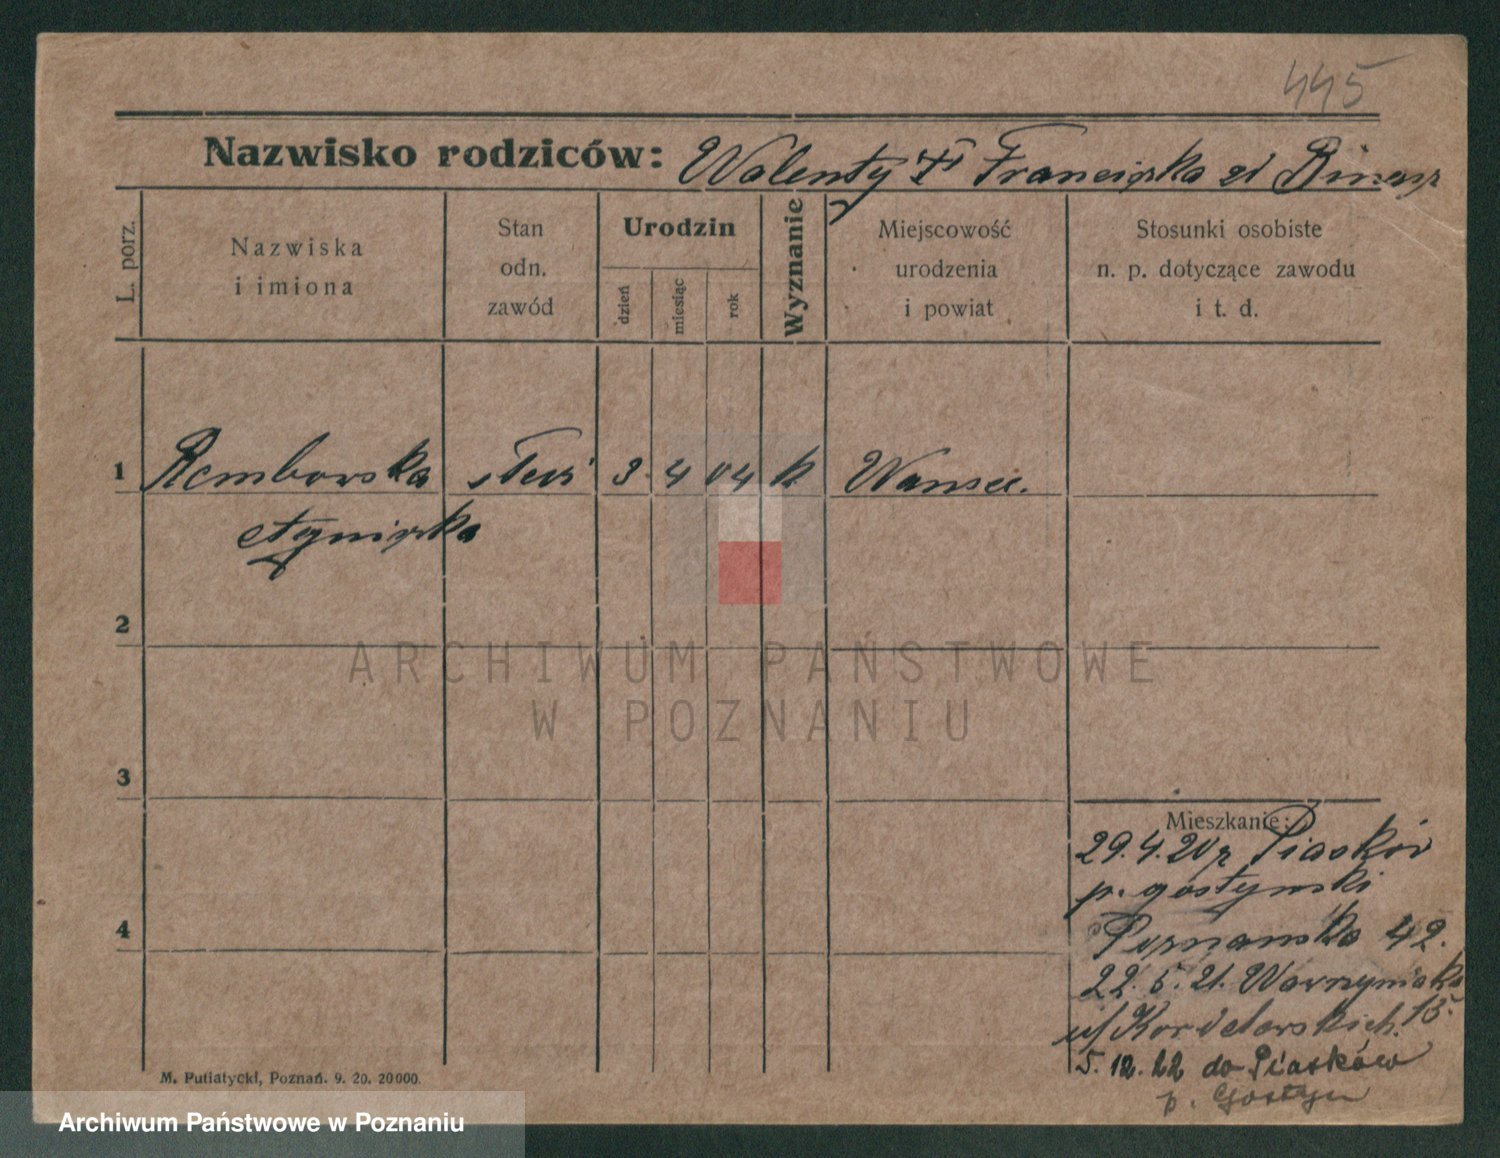 445
Nazwisko rodziców: Walenty Franciszka zd
L. porz.
Nazwiska
i imiona
Stan
odn.
zawód
Urodzin
dzień
miesiąc
rok
Wyznanie
Miejscowość
urodzenia
i powiat
Stosunki osobiste
n. p. dotyczące zawodu
i t. d.
1 Rembowska służ 3. 4 04 k
Agniszka
2
3
4
Mieszkanie:
29.4.20 z Piasków
p. gostynski
Poznańska 42.
22.5.21. Wawrzyniaka
15.
5.12.22 do Piasków
p. Gostyn
M. Putiatycki, Poznań. 9. 20. 20000.
ARCHIWUM PAŃSTWOWE
W POZNANIU
Archiwum Państwowe w Poznaniu